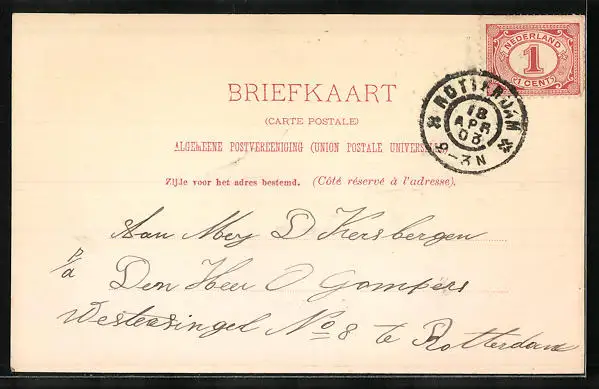 NEDERLAND
1
1 CENT
ROTTERDAM
18
APR
03
-3N
BRIEFKAART
(CARTE POSTALE)
ALGEMEENE POSTVEREENIGING (UNION POSTALE UNIVERSE
Zijde voor het adres bestemd. (Côté réservé à l'adresse).
Aan Mej D Kersbergen
p/a Den Heer O Gompers
Westersingel No 8 te Rotterdam